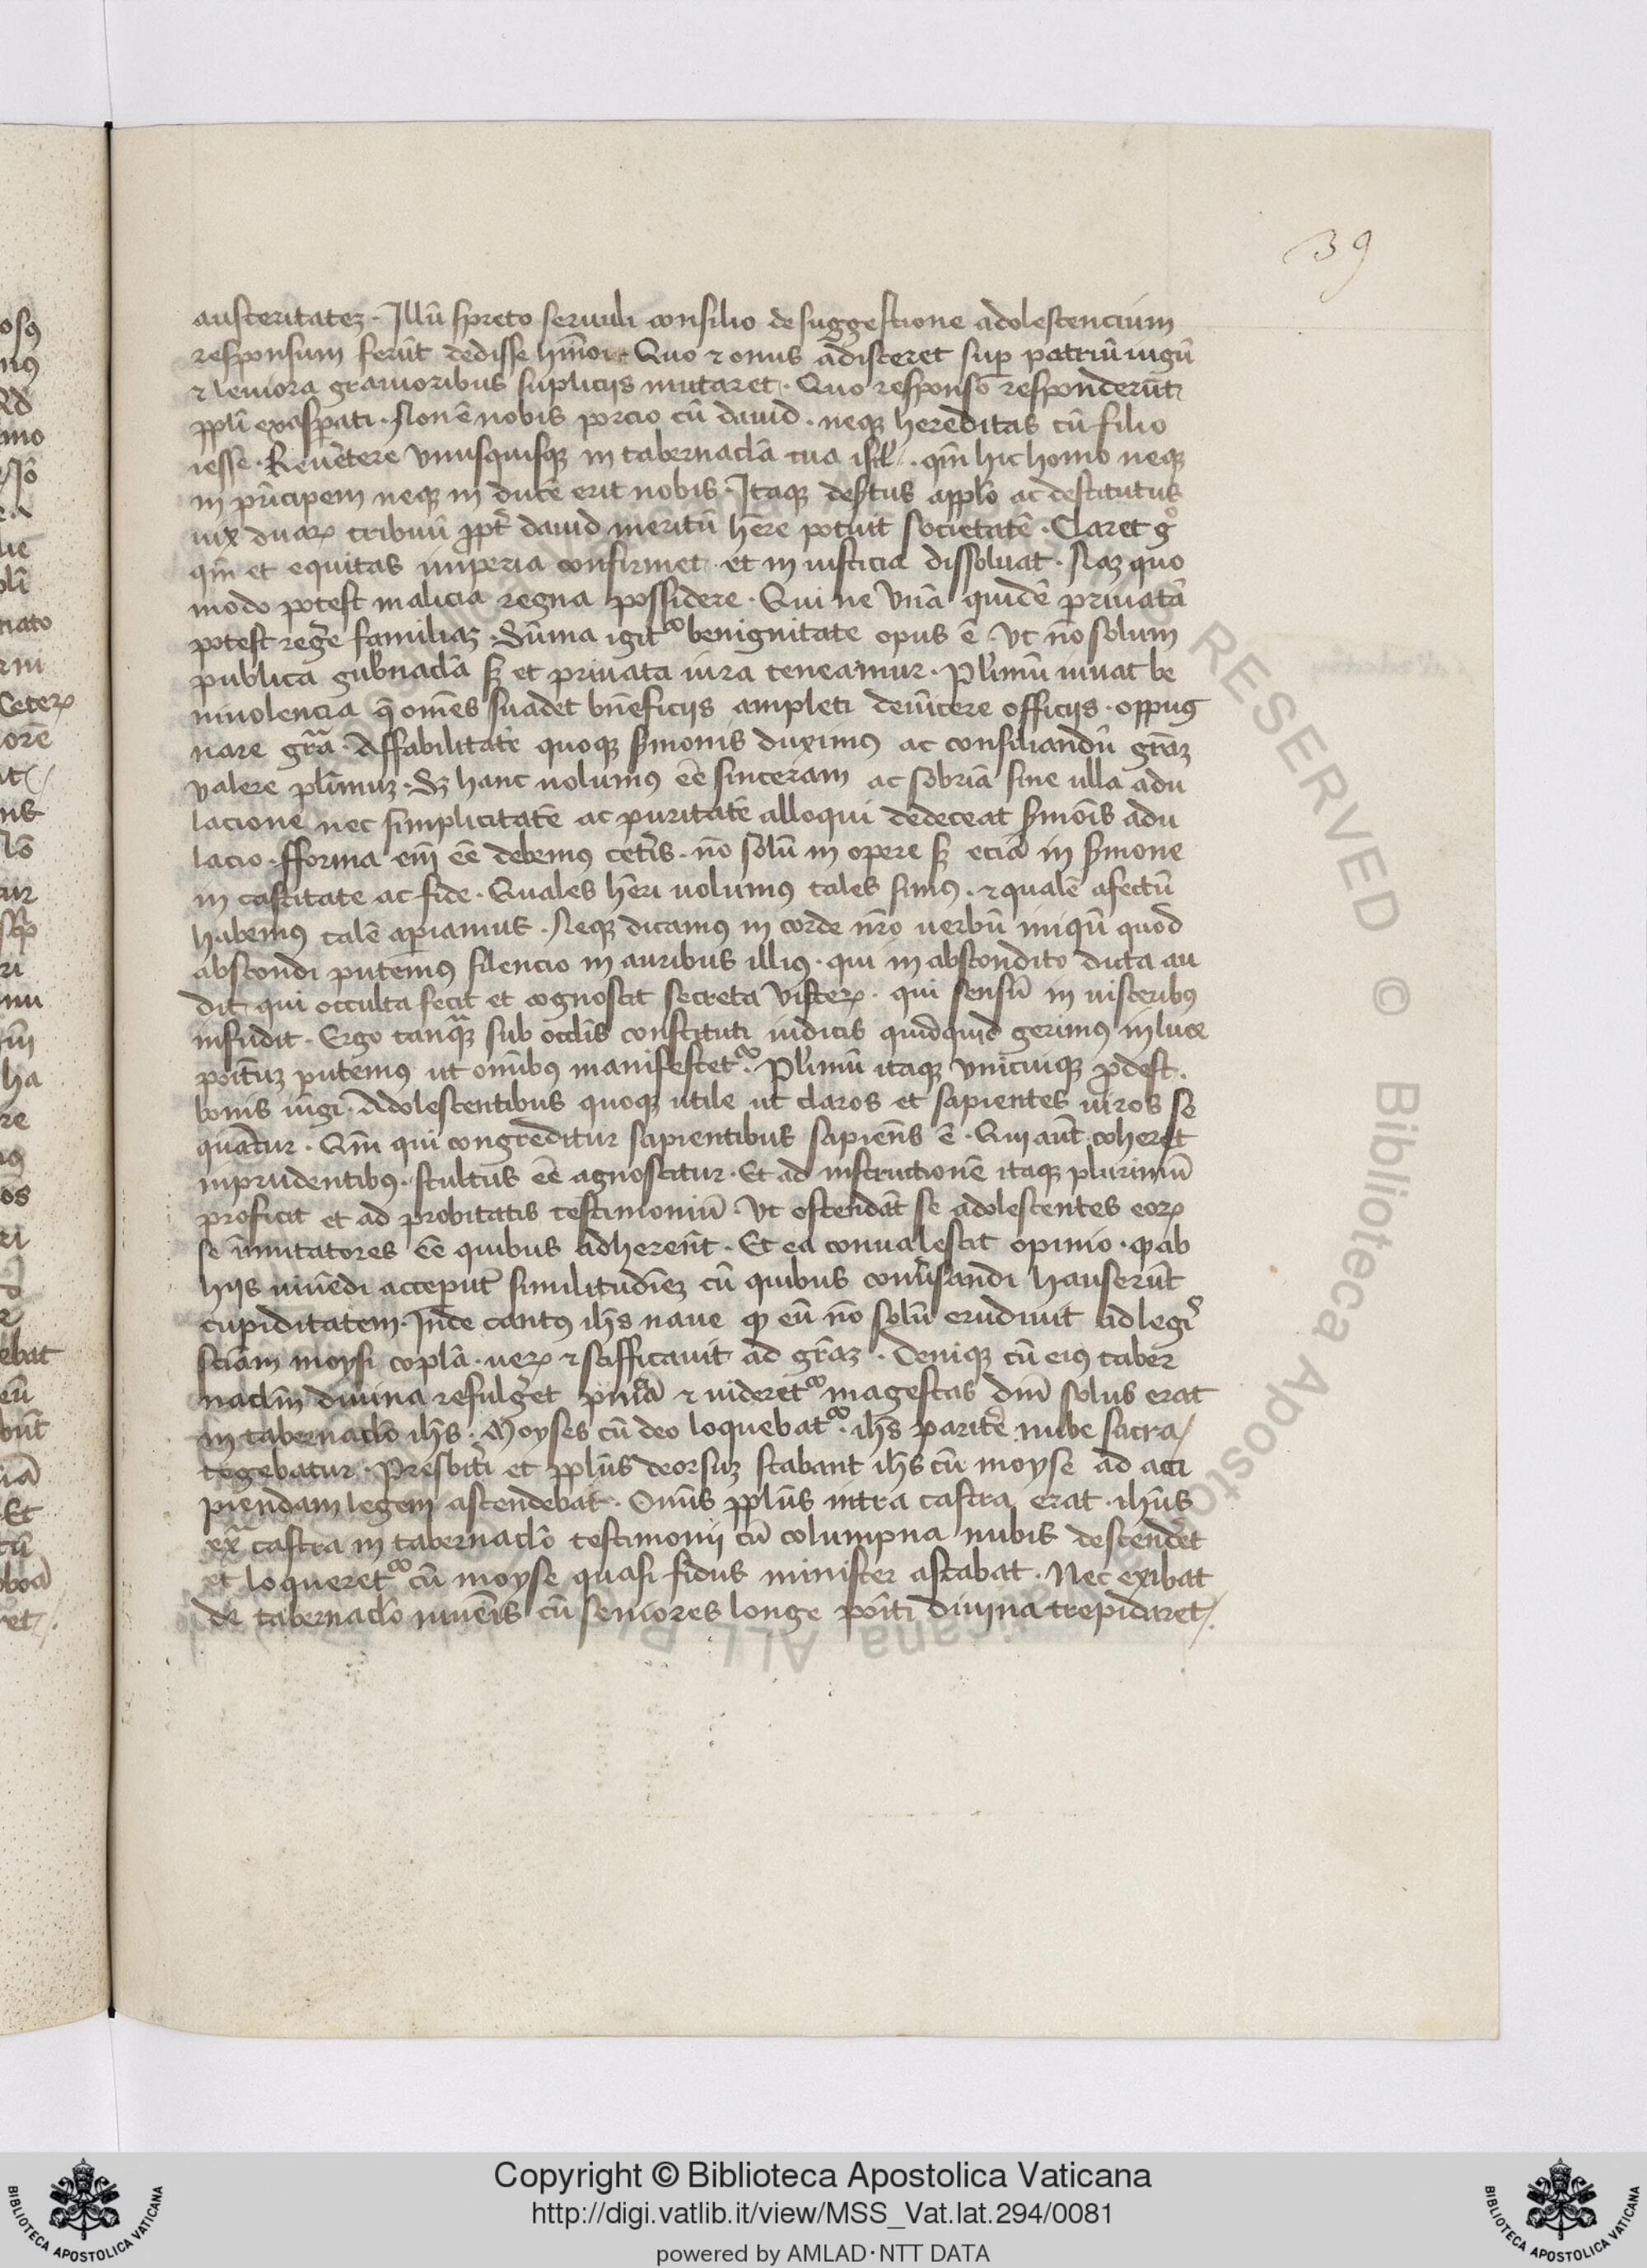 39
austeritatez · Illū spreto seruuli consilio de suggestione adolescencium
responsum ferūt dedisse hmōi · Quo ⁊ onus adisceret sup patriū iugū
⁊ leuiora grauioribus suplicijs mutaret · Quo responso responderūt
ppli exaspati · Non ē nobis porcio cū dauid · neqȝ hereditas cū filio
iesse · Reuertere vnusquisqȝ in tabernacła tua isrł · qm̄ hic homo neqȝ
in principem neqȝ in ducē erit nobis · Itaqȝ desertus a pplo ac destitutus
uix duaꝝ tribuū ppt dauid meritū hēre potuit societatē · Claret gͦ
qm̄ et equitas imperia confirmet · et in iusticia dissoluat · Naȝ quo
modo potest malicia regna possidere · Qui ne vnā quidē priuatā
potest regere familiaȝ · Sūma igit benignitate opus ē · Vt nō solum
publica gubnacła sȝ et priuata iura teneamur · Plimū iuuat be
niuolencia que omēs suadet bn̄eficijs ampleti deuīcere officijs · oppug
nare grā · Affabilitatē quoqȝ sermonis duximꝰ ac consiliandū grāȝ
valere plimuȝ · Sȝ hanc uolumꝰ eē sinceram ac sobriā sine ulla adu
lacione nec simplicitatē ac puritatē alloqui dedeceat sermōis adu
lacio · fforma em̄ eē debemꝰ ceteris · nō solū in opere sȝ eciā in sermone
in castitate ac fide · Quales hēri uolumus tales simꝰ · ⁊ qualē afectū
habemꝰ talē apiamus · Neqȝ dicamꝰ in corde nr̄o uerbū iniqū quod
abscondi putemꝰ silencio in auribus illiꝰ · qui in abscondito dicta au
dit qui occulta fecit et cognoscit secreta visceꝝ · qui sensū in uisceribꝰ
infudit · Ergo tanqȝ sub oculis constituti iudicis quidquid gerimꝰ in luce
poītuȝ putemus ut omībus manifestet · Plimū itaqȝ vnicuiqȝ pdest ·
bonis iūgi · Adolescentibus quoqȝ utile ut claros et sapientes uiros se
quātur · Qm̄ qui congreditur sapientibus sapiens ē · Qui aūt coheret
inprudentibꝰ · stultus eē agnoscitur · Et ad instructionē itaqȝ plurimū
proficit et ad probitatis testimoniū · Vt ostendāt se adolescentes eoꝝ
se imitatores eē quibus adherent · Et ea conualescit opinio · qꝫ ab
hijs uiuēdi acceput similitudīeȝ cū quibus conuersandi hauserūt
cupiditatem · Inde cantꝰ ihs naue qꝫ eū nō solū erudiuit ad legis
sciām moysi copla · ueꝝ ⁊ scīfficauit ad grāȝ · Deniqȝ cū eiꝰ taber
naclm̄ diuina refulgeret pn̄cia ⁊ uideret magestas dnī solus erat
in tabernaclo ihs · Moyses cū deo loquebat · ihs pariter nube sacra
tegebatur · Presbiteri et pplus deorsuȝ stabant ihs cū moyse ad acci
piendam legem ascendebat · Omīs pplus intra castra erat · ihus
exª castra in tabernaclo testimonij cū columpna nubis descenderet
et loqueret cū moyse quasi fidus minister astabat · Nec exibat
de tabernaclo iuuēis cū seniores longe poīti diuina trepidaret ·
Copyright © Biblioteca Apostolica Vaticana
http://digi.vatlib.it/view/MSS_Vat.lat.294/0081
powered by AMLAD·NTT DATA